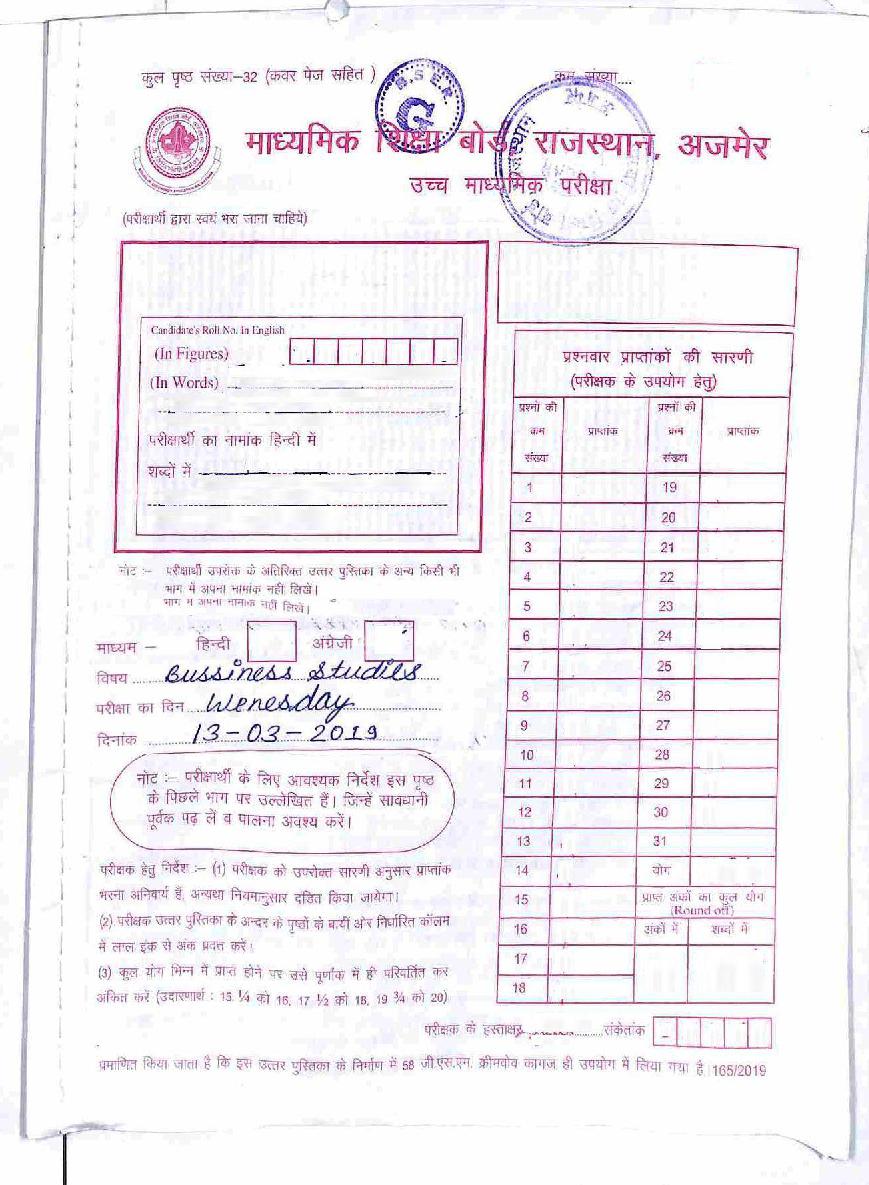 कुल पृष्ठ संख्या-32 (कवर पेज सहित )
क्रम संख्या....
B.S.E.R.
G
माध्यमिक शिक्षा बोर्ड राजस्थान, अजमेर
उच्च माध्यमिक परीक्षा
(परीक्षार्थी द्वारा स्वयं भरा जाना चाहिये)
Candidate's Roll No. in English
(In Figures)
(In Words)
परीक्षार्थी का नामांक हिन्दी में
शब्दों में
प्रश्नवार प्राप्तांकों की सारणी
(परीक्षक के उपयोग हेतु)
प्रश्नों की क्रम संख्या प्राप्तांक प्रश्नों की क्रम संख्या प्राप्तांक
1 19
2 20
3 21
4 22
5 23
6 24
7 25
8 26
9 27
10 28
11 29
12 30
13 31
14 योग
15 प्राप्त अंकों का कुल योग (Round off)
16 अंकों में शब्दों में
17
18
नोट :- परीक्षार्थी उपरोक्त के अतिरिक्त उत्तर पुस्तिका के अन्य किसी भी
भाग में अपना नामांक नहीं लिखें।
भाग में अपना नामांक नहीं लिखें।
माध्यम - हिन्दी अंग्रेजी
विषय Bussiness Studies
परीक्षा का दिन Wenesday
दिनांक 13-03-2019
नोट :- परीक्षार्थी के लिए आवश्यक निर्देश इस पृष्ठ
के पिछले भाग पर उल्लेखित हैं। जिन्हें सावधानी
पूर्वक पढ़ लें व पालना अवश्य करें।
परीक्षक हेतु निर्देश :- (1) परीक्षक को उपरोक्त सारणी अनुसार प्राप्तांक
भरना अनिवार्य है, अन्यथा नियमानुसार दंडित किया जायेगा।
(2) परीक्षक उत्तर पुस्तिका के अन्दर के पृष्ठों के बायीं ओर निर्धारित कॉलम
में लाल इंक से अंक प्रदत्त करें।
(3) कुल योग भिन्न में प्राप्त होने पर उसे पूर्णांक में ही परिवर्तित कर
अंकित करें (उदाहरणार्थ : 15 ¼ को 16, 17 ½ को 18, 19 ¾ को 20)
परीक्षक के हस्ताक्षर संकेतांक
प्रमाणित किया जाता है कि इस उत्तर पुस्तिका के निर्माण में 58 जी.एस.एम. क्रीमवोव कागज ही उपयोग में लिया गया है।165/2019